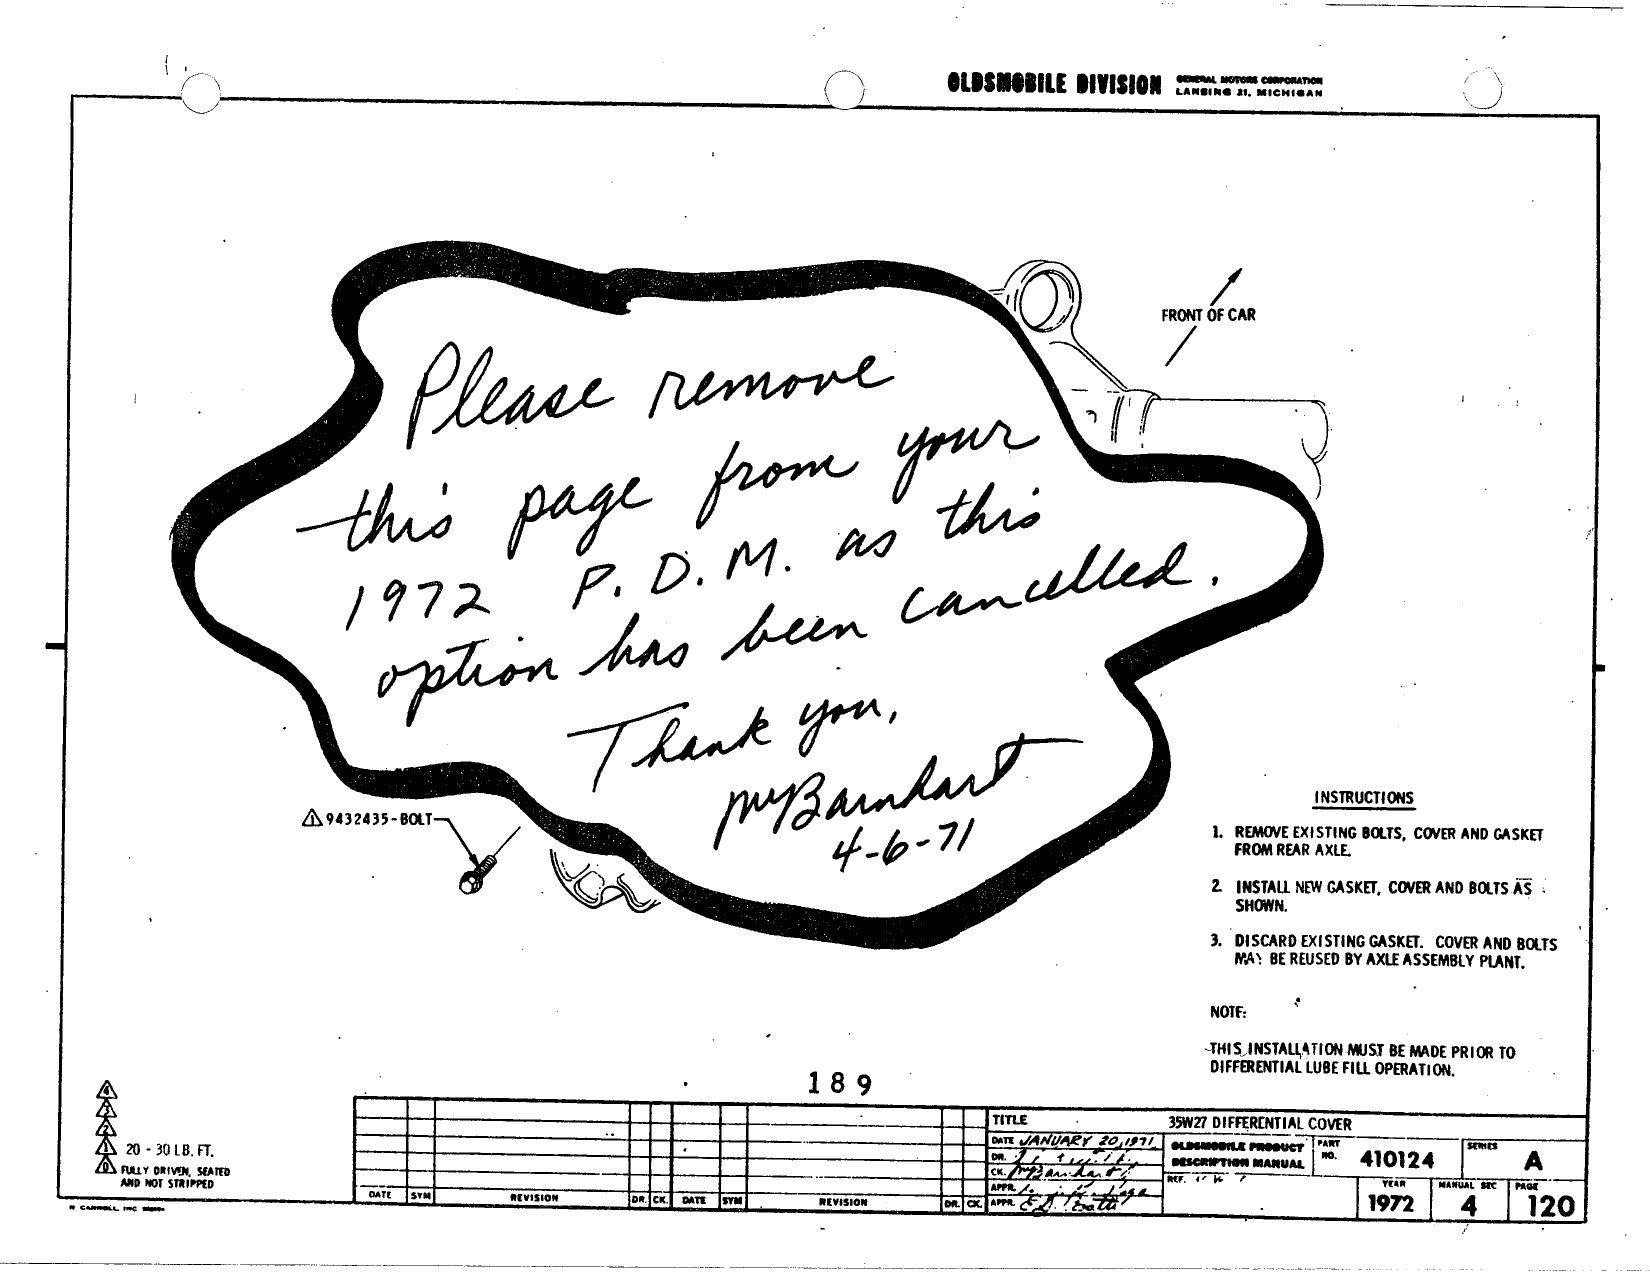 OLDSMOBILE DIVISION
GENERAL MOTORS CORPORATION
LANSING 21, MICHIGAN
FRONT OF CAR
Please remove
this page from your
1972 P.D.M. as this
option has been cancelled.
Thank you,
Barnhart
4-6-71
1 9432435-BOLT
INSTRUCTIONS
1. REMOVE EXISTING BOLTS, COVER AND GASKET
FROM REAR AXLE.
2. INSTALL NEW GASKET, COVER AND BOLTS AS
SHOWN.
3. DISCARD EXISTING GASKET. COVER AND BOLTS
MAY BE REUSED BY AXLE ASSEMBLY PLANT.
NOTE:
THIS INSTALLATION MUST BE MADE PRIOR TO
DIFFERENTIAL LUBE FILL OPERATION.
189
4
3
2
1 20 - 30 LB. FT.
0 FULLY DRIVEN, SEATED
AND NOT STRIPPED
DATE SYM REVISION DR. CK. DATE SYM REVISION DR. CK.
TITLE 35W27 DIFFERENTIAL COVER
DATE JANUARY 20, 1971
DR.
CK. Barnhart
APPR.
APPR.
OLDSMOBILE PRODUCT
DESCRIPTION MANUAL
REF.
PART NO. 410124
SERIES A
YEAR 1972
MANUAL SEC 4
PAGE 120